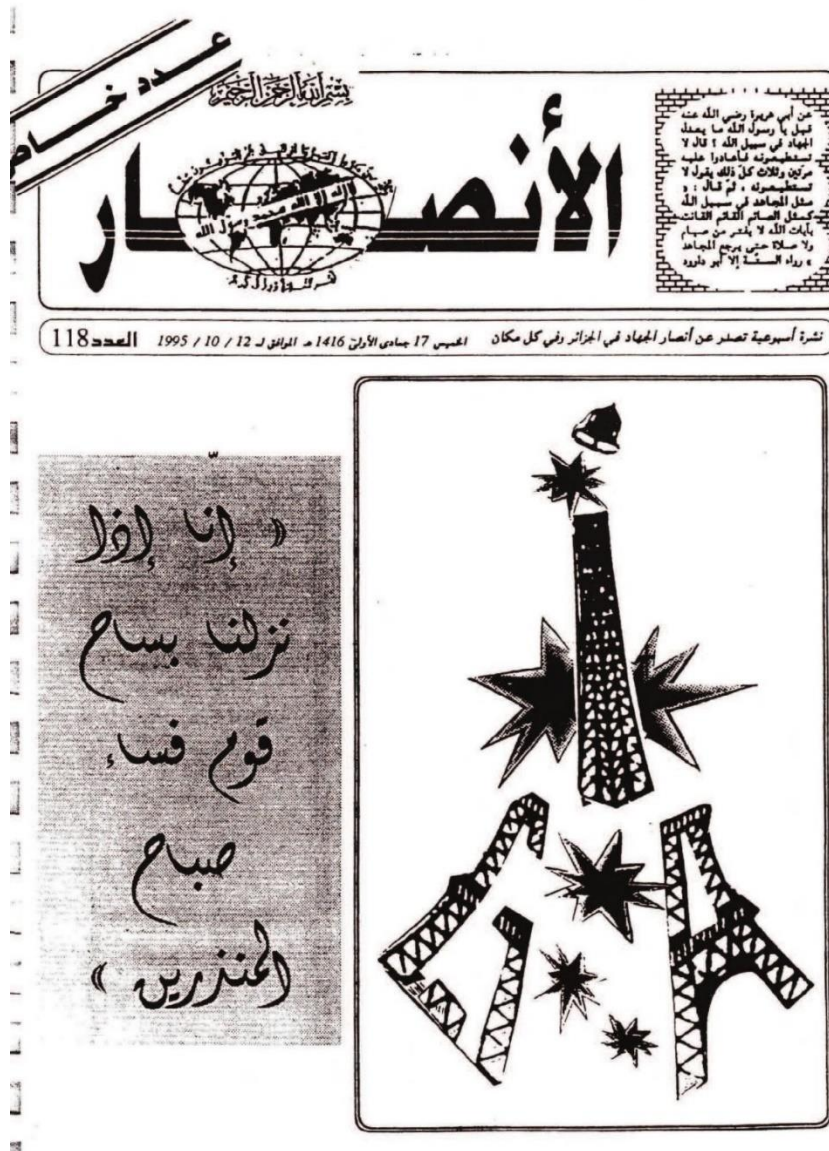 عـدد خـاص
بسم الله الرحمن الرحيم
الأنصـار
لا إله إلا الله محمد رسول الله
عن أبي هريرة رضي الله عنه
قيل يا رسول الله ما يعدل
الجهاد في سبيل الله ؟ قال لا
تستطيعونه فأعادوا عليه
مرّتين وثلاث كلّ ذلك يقول لا
تستطيعونه ، ثم قال : «
مثل المجاهد في سبيل الله
كمثل الصائم القائم القانت
بآيات الله لا يفتر من صيام
ولا صلاة حتى يرجع المجاهد
» رواه الستّة إلا أبو داوود
نشرة أسبوعية تصدر عن أنصار الجهاد في الجزائر وفي كل مكان الخميس 17 جمادى الأولى 1416 هـ الموافق لـ 12 / 10 / 1995 العدد 118
« إنا إذا
نزلنا بساح
قوم فساء
صباح
المنذرين »
GIA